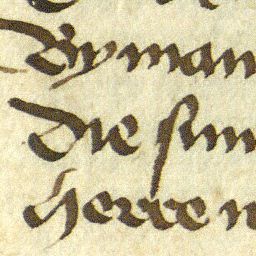 Syman
Die sun
herre n